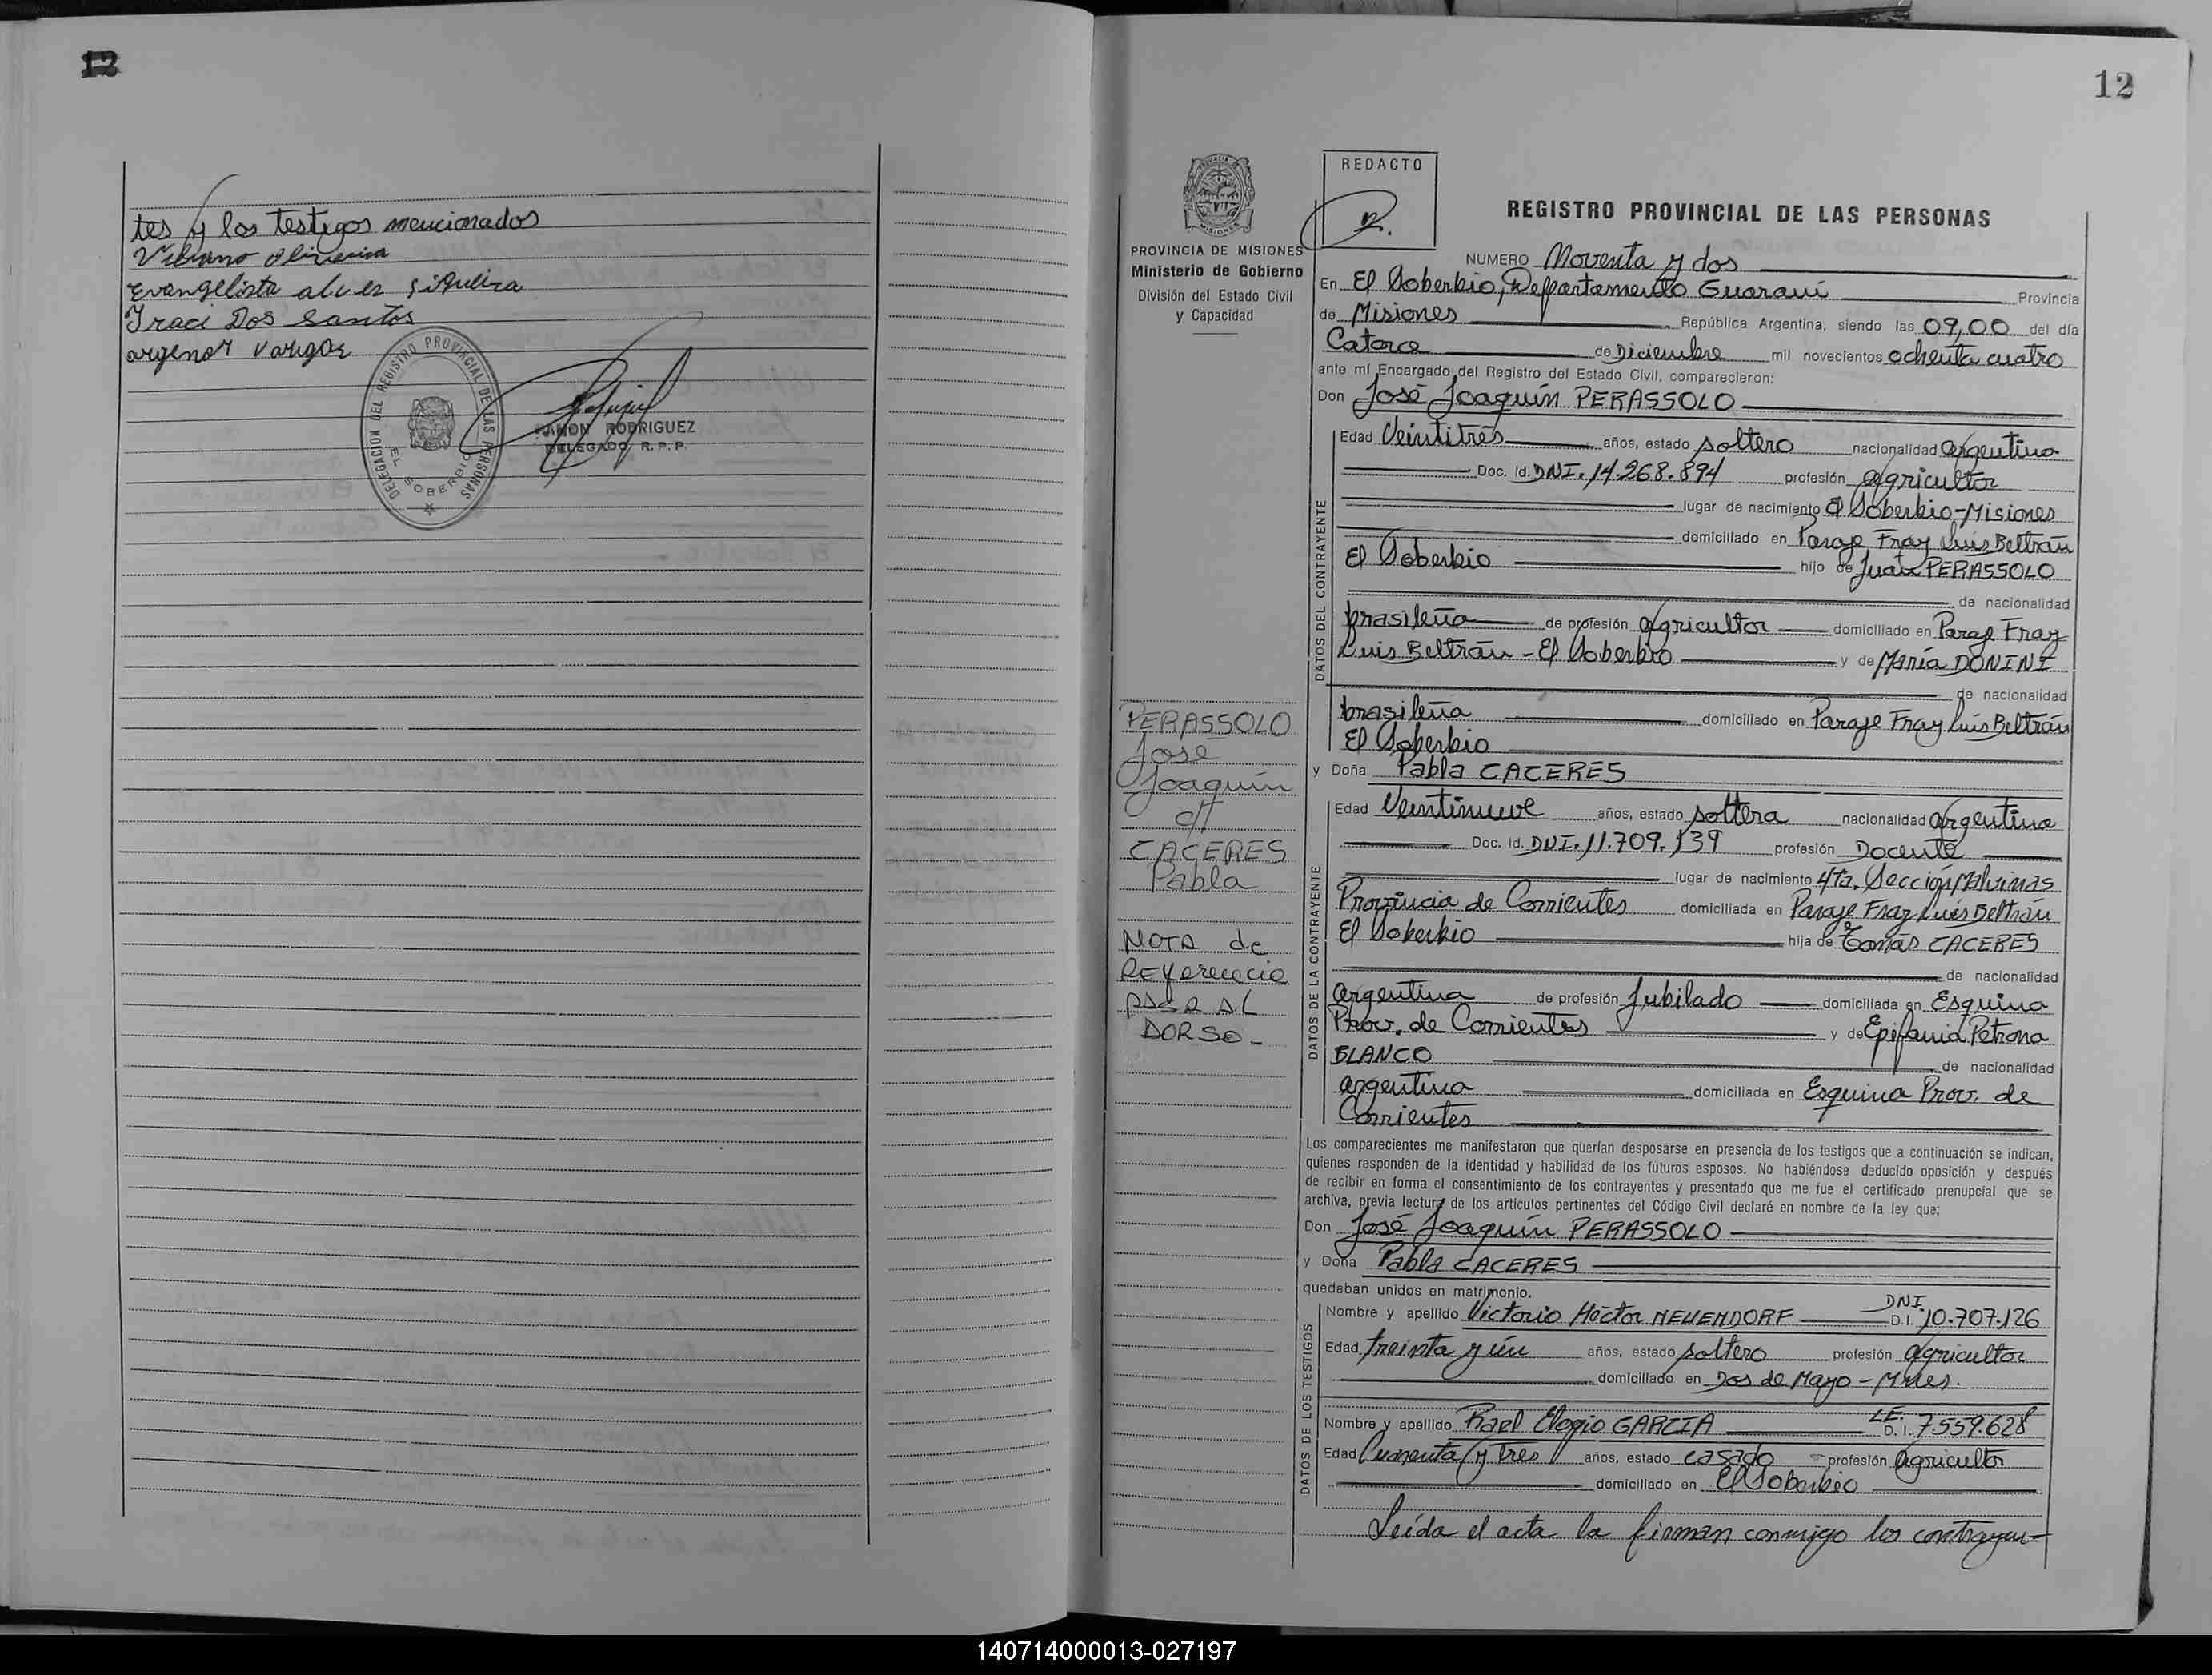 12
tes y los testigos mencionados
Evangelista alves siqueira
Iraci Dos Santos
argenor vargas
DELEGACION DEL REGISTRO PROVINCIAL DE LAS PERSONAS
EL SOBERBIO
RAMON RODRIGUEZ
DELEGADO R.P.P.
12
PROVINCIA DE MISIONES
Ministerio de Gobierno
División del Estado Civil
y Capacidad
REDACTO
REGISTRO PROVINCIAL DE LAS PERSONAS
NUMERO Noventa y dos
En El Soberbio, Departamento Guaraní Provincia
de Misiones República Argentina, siendo las 09,00 del día
Catorce de Diciembre mil novecientos ochenta cuatro
ante mí Encargado del Registro del Estado Civil, comparecieron:
Don José Joaquín PERASSOLO
DATOS DEL CONTRAYENTE
Edad Veintitrés años, estado soltero nacionalidad argentina
Doc. Id. DNI. 14.268.894 profesión agricultor
lugar de nacimiento El Soberbio-Misiones
domiciliado en Paraje Fray Luis Beltrán
El Soberbio hijo de Juan PERASSOLO
de nacionalidad
brasileña de profesión agricultor domiciliado en Paraje Fray
Luis Beltrán - El Soberbio y de María DONINI
de nacionalidad
brasileña domiciliado en Paraje Fray Luis Beltrán
El Soberbio
y Doña Pabla CACERES
DATOS DE LA CONTRAYENTE
Edad Veintinueve años, estado soltera nacionalidad argentina
Doc. Id. DNI. 11.709.139 profesión Docente
lugar de nacimiento 4ta. Sección Malvinas
Provincia de Corrientes domiciliada en Paraje Fray Luis Beltrán
El Soberbio hija de Tomás CACERES
de nacionalidad
argentina de profesión Jubilado domiciliada en Esquina
Prov. de Corrientes y de Epifania Petrona
BLANCO de nacionalidad
argentina domiciliada en Esquina Prov. de
Corrientes
PERASSOLO
José
Joaquín
c/
CACERES
Pabla
NOTA de
Referencia
pasa AL
DORSO-
Los comparecientes me manifestaron que querían desposarse en presencia de los testigos que a continuación se indican,
quienes responden de la identidad y habilidad de los futuros esposos. No habiéndose deducido oposición y después
de recibir en forma el consentimiento de los contrayentes y presentado que me fue el certificado prenupcial que se
archiva, previa lectura de los artículos pertinentes del Código Civil declaré en nombre de la ley que;
Don José Joaquín PERASSOLO
y Doña Pabla CACERES
quedaban unidos en matrimonio.
DATOS DE LOS TESTIGOS
Nombre y apellido Victorio Héctor NEUENDORF DNI. D.I. 10.707.126
Edad treinta y ún años, estado soltero profesión agricultor
domiciliado en Dos de Mayo - Mnes.
Nombre y apellido Raul Elogio GARCIA LE. D.I. 7.559.628
Edad Cuarenta y tres años, estado casado profesión agricultor
domiciliado en El Soberbio
Leída el acta la firman conmigo los contrayen-
140714000013-027197